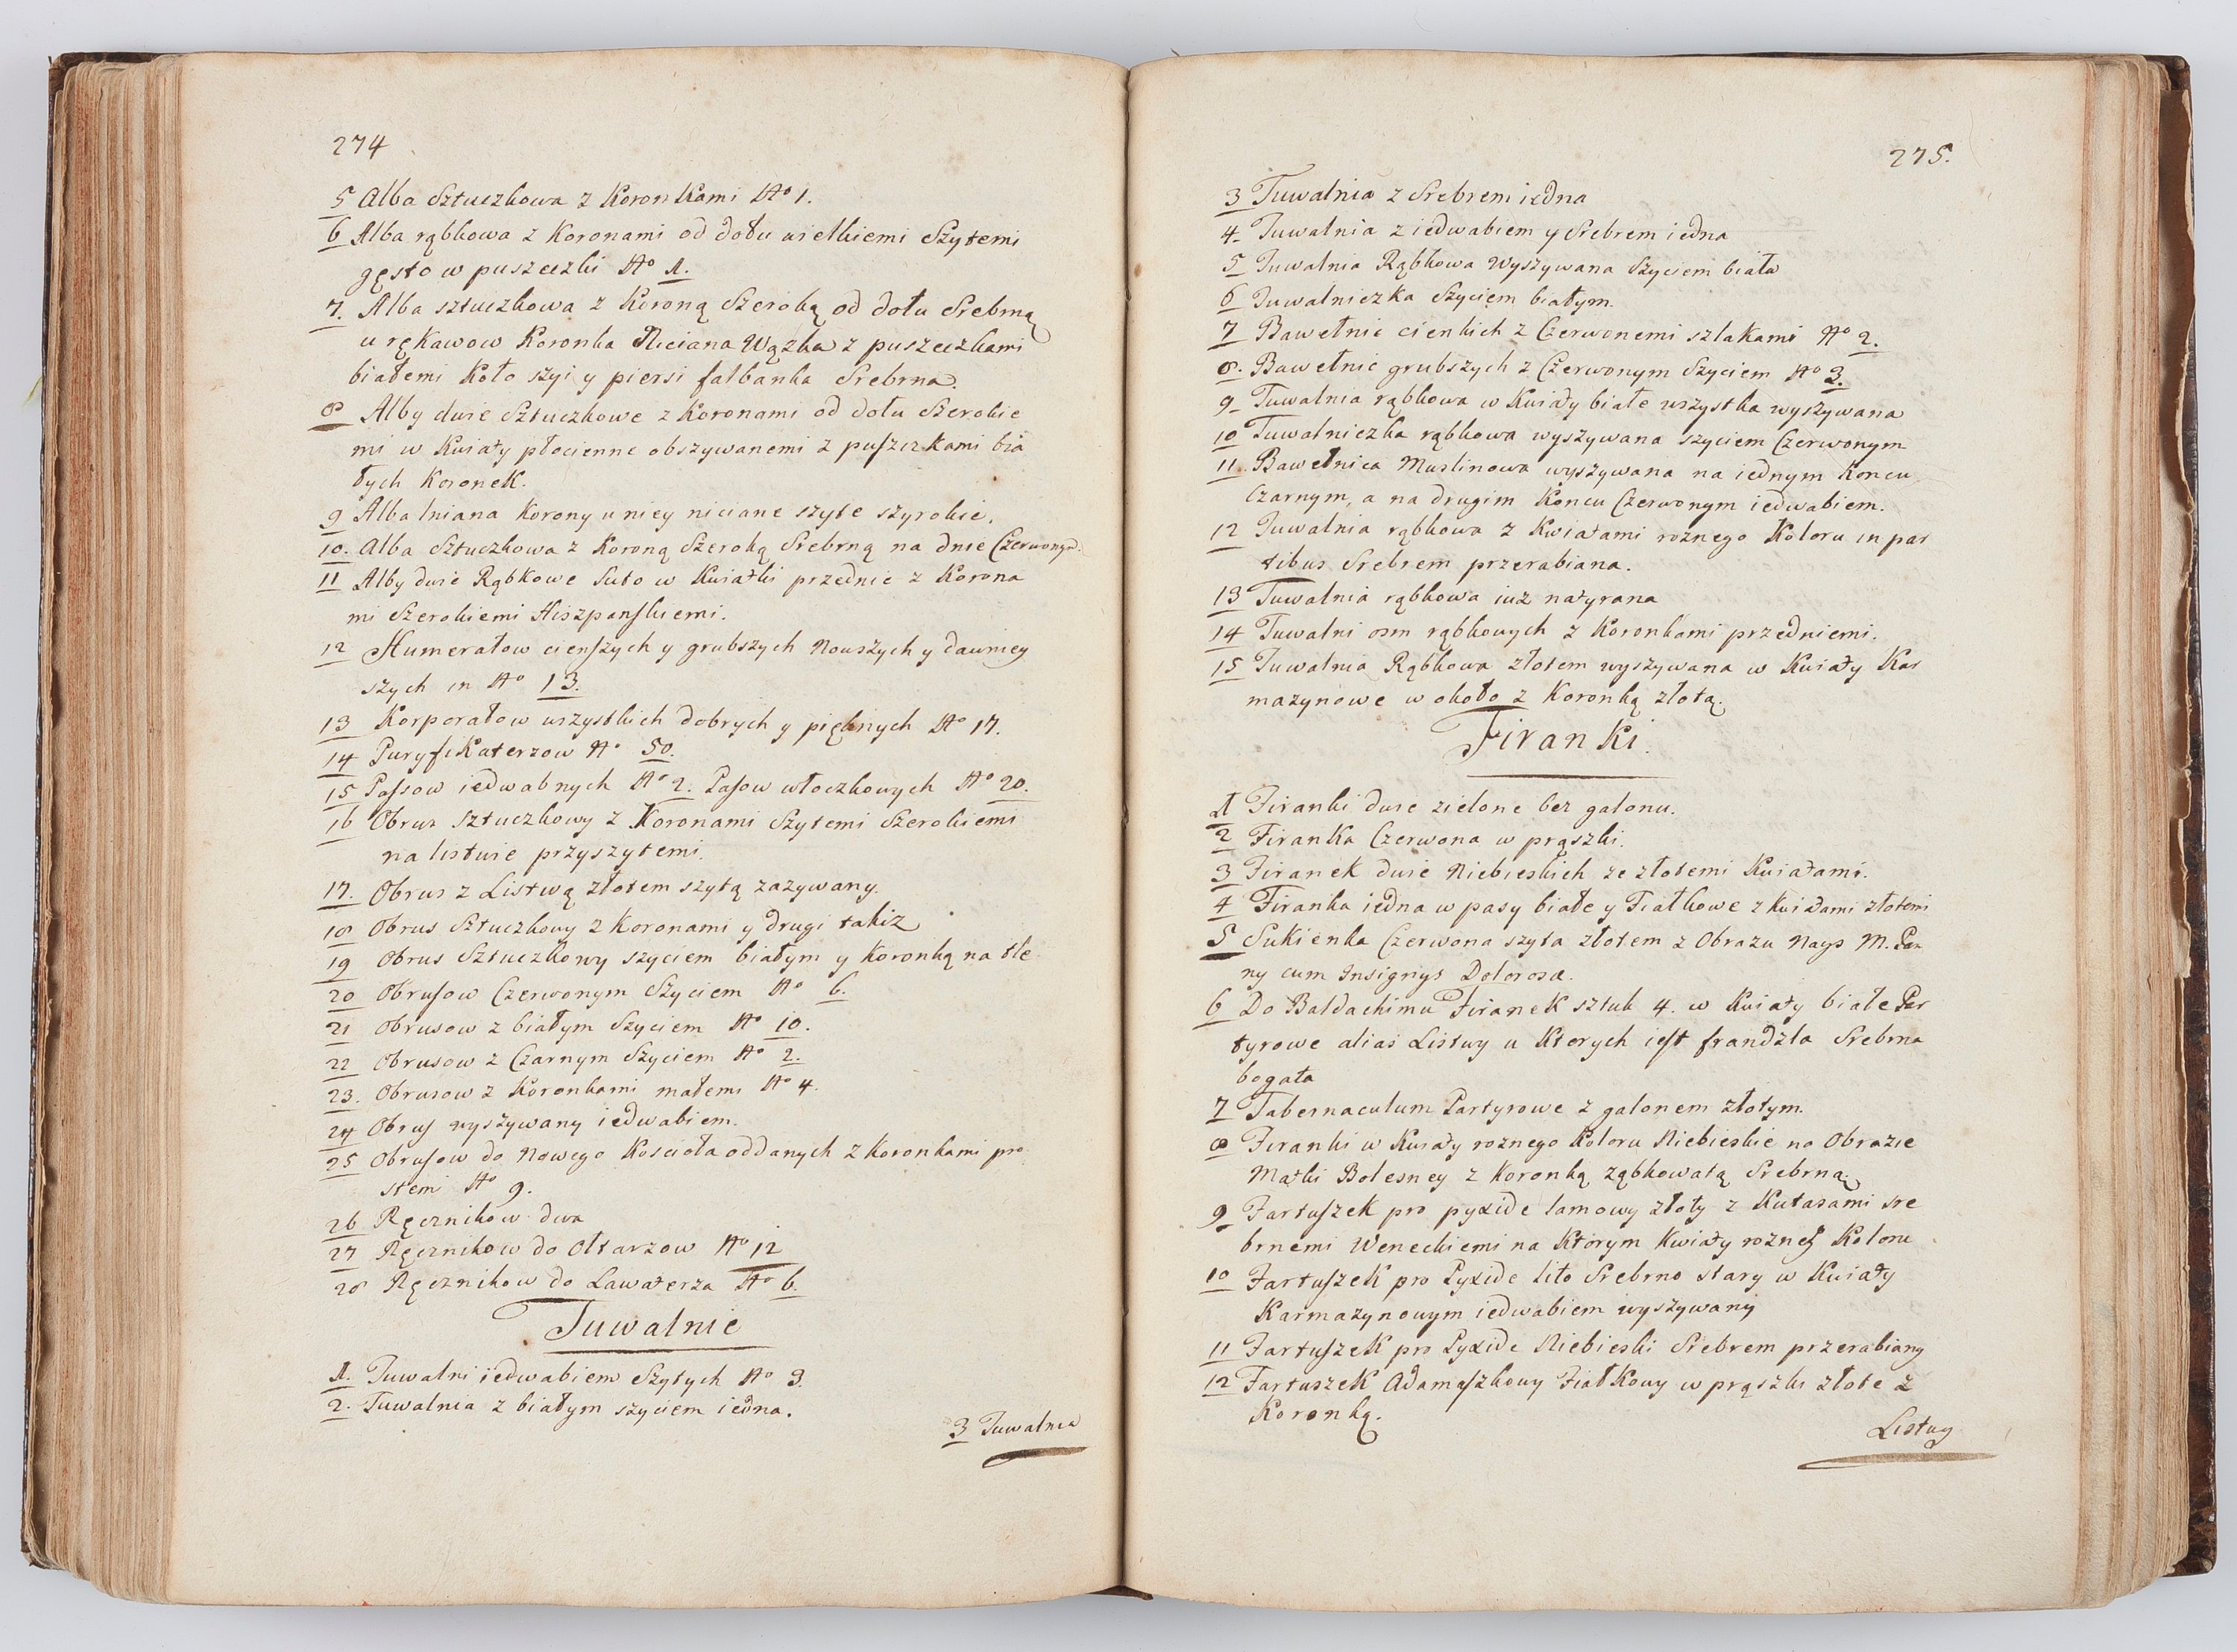 274
5 Alba Sztuczkowa z Koronkami No 1.
6 Alba rąbkowa z Koronami od dołu wielkiemi Szytemi
gęsto w puszeczki No 1.
7. Alba sztuczkowa z Koroną Szeroką od dołu Srebrną
u rękawow Koronka Niciana Wązka z puszeczkami
białemi Koło szyi y piersi falbanka Srebrna.
8 Alby dwie Sztuczkowe z Koronami od dołu Szerokie
mi w Kwiaty płocienne obszywanemi z puſzczkami bia
łych Koronek.
9 Alba lniana Korony u niey niciane szyte szyrokie.
10. Alba Sztuczkowa z Koroną Szeroką Srebrną na dnie Czerwonym.
11 Alby dwie Rąbkowe Suto w Kwiatki przednie z Korona
mi Szerokiemi Hiszpanſkiemi.
12 Humerałow cienſzych y grubszych Nowszych y dawniey
szych in No 13.
13 Korporałow wszystkich dobrych y pięknych No 17.
14 Puryfikaterzow No 50.
15 Paſsow iedwabnych No 2. Paſow włoczkowych No 20.
16 Obrus Sztuczkowy z Koronami Szytemi Szerokiemi
na listwie przyszytemi.
17. Obrus z Listwą złotem szytą zazywany.
18 Obrus Sztuczkowy z Koronami y drugi takiz
19 Obrus Sztuczkowy szyciem białym y Koronką na tle
20 Obruſow Czerwonym Szyciem No 6.
21 Obrusow z białym Szyciem No 10.
22 Obrusow z Czarnym Szyciem No 2.
23. Obrusow z Koronkami małemi No 4.
24 Obruſ wyszywany iedwabiem.
25 Obruſow do Nowego Kościoła oddanych z Koronkami pro
stemi No 9.
26 Ręcznikow dwa
27 Ręcznikow do Ołtarzow No 12
28 Ręcznikow do Lawaterza No 6.
Tuwalnie
1. Tuwalni iedwabiem Szytych No 3.
2. Tuwalnia z białym szyciem iedna.
3 Tuwalnia
275.
3 Tuwalnia z Srebrem iedna
4. Tuwalnia z iedwabiem y Srebrem iedna
5 Tuwalnia Rąbkowa Wyszywana Szyciem biała
6 Tuwalniczka Szyciem białym.
7 Bawełnic cienkich z Czerwonemi szlakami No 2.
8. Bawełnic grubszych z Czerwonym Szyciem No 3.
9 Tuwalnia rąbkowa w Kwiaty białe wszystka wyszywana
10 Tuwalniczka rąbkowa wyszywana szyciem Czerwonym
11. Bawełnica Muslinowa wyszywana na iednym Koncu
Czarnym, a na drugim Koncu Czerwonym iedwabiem.
12 Tuwalnia rąbkowa z Kwiatami roznego Koloru in par
tibus Srebrem przerabiana.
13 Tuwalnia rąbkowa iuz natyrana
14 Tuwalni osm rąbkowych z Koronkami przedniemi.
15 Tuwalnia Rąbkowa złotem wyszywana w Kwiaty Kar
mazynowe w około z Koronką złotą.
Firanki.
1 Firanki dwie zielone bez galonu.
2 Firanka Czerwona w prąszki.
3 Firanek dwie Niebieskich ze złotemi Kwiatami.
4 Firanka iedna w pasy białe y Fiałkowe z Kwiatami złotemi
5 Sukienka Czerwona szyta złotem z Obrazu Nayś M. Pan
ny cum Insignys Dolorosæ.
6 Do Baldachimu Firanek sztuk 4. w Kwiaty białe Par
tyrowe alias Listwy u Ktorych ieſt frandzla Srebrna
bogata
7 Tabernaculum Partyrowe z galonem złotym.
8 Firanki w Kwiaty roznego Koloru Niebieskie na Obrazie
Matki Bolesney z Koronką ząbkowatą Srebrną.
9 Fartuſzek pro pyxide lamowy złoty z Kutasami sre
brnemi Weneckiemi na Ktorym Kwiaty roznego Koloru
10 Fartuſzek pro Pyxide lito Srebrno stary w Kwiaty
Karmazynowym iedwabiem wyszywany
11 Fartuſzek pro Pyxide Niebieski Srebrem przerabiany
12 Fartuszek Adamaſzkowy Fiałkowy w prąszki złote z
Koronką.
Listwy